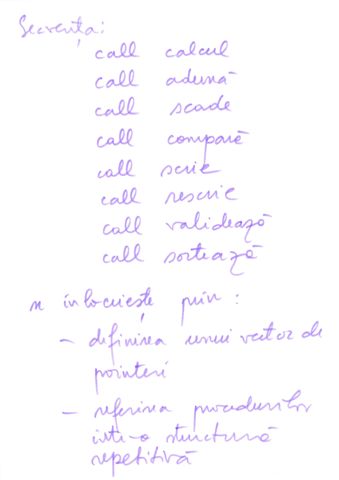 Secvența:
call calcul
call adună
call scade
call compară
call scrie
call rescrie
call validează
call sortează
se înlocuiește prin :
- definirea unui vector de
pointeri
- referirea procedurilor
într-o structură
repetitivă